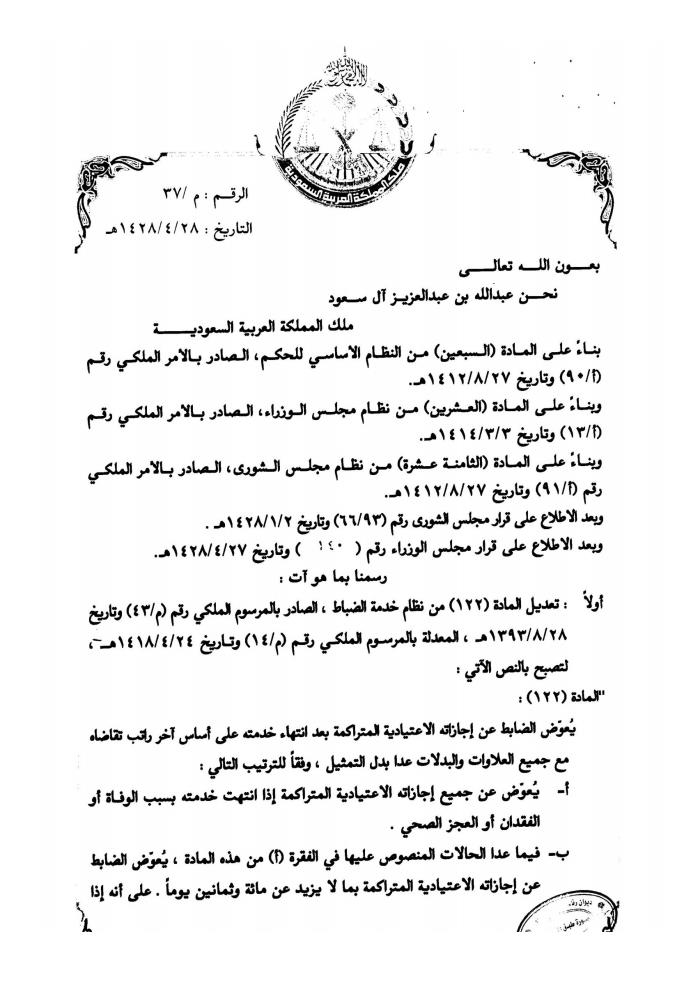 ملك المملكة العربية السعودية
الرقم : م /٣٧
التاريخ : ١٤٢٨/٤/٢٨هـ
بعـــون اللـــه تعالـــى
نحـن عبدالله بن عبدالعزيز آل سعود
ملك المملكة العربية السعوديـــة
بناءً على المادة (السبعين) من النظام الاساسي للحكم، الصادر بالامر الملكي رقم
(أ/٩٠) وتاريخ ١٤١٢/٨/٢٧هـ.
وبناءً على المادة (العشرين) من نظام مجلس الوزراء، الصادر بالامر الملكي رقم
(أ/١٣) وتاريخ ١٤١٤/٣/٣هـ.
وبناءً على المادة (الثامنة عشرة) من نظام مجلس الشورى، الصادر بالامر الملكي
رقم (أ/٩١) وتاريخ ١٤١٢/٨/٢٧هـ.
وبعد الاطلاع على قرار مجلس الشورى رقم (٦٦/٩٣) وتاريخ ١٤٢٨/١/٢هـ .
وبعد الاطلاع على قرار مجلس الوزراء رقم ( ١٤٠ ) وتاريخ ١٤٢٨/٤/٢٧هـ.
رسمنا بما هو آت :
أولاً : تعديل المادة (١٢٢) من نظام خدمة الضباط ، الصادر بالمرسوم الملكي رقم (م/٤٣) وتاريخ
١٣٩٣/٨/٢٨هـ ، المعدلة بالمرسوم الملكي رقم (م/١٤) وتاريخ ١٤١٨/٤/٢٤هـ ،
لتصبح بالنص الآتي :
"المادة (١٢٢) :
يُعوّض الضابط عن إجازاته الاعتيادية المتراكمة بعد انتهاء خدمته على أساس آخر راتب تقاضاه
مع جميع العلاوات والبدلات عدا بدل التمثيل ، وفقاً للترتيب التالي :
أ- يُعوّض عن جميع إجازاته الاعتيادية المتراكمة إذا انتهت خدمته بسبب الوفاة أو
الفقدان أو العجز الصحي .
ب- فيما عدا الحالات المنصوص عليها في الفقرة (أ) من هذه المادة ، يُعوّض الضابط
عن إجازاته الاعتيادية المتراكمة بما لا يزيد عن مائة وثمانين يوماً . على أنه إذا
ديوان
صورة طبق